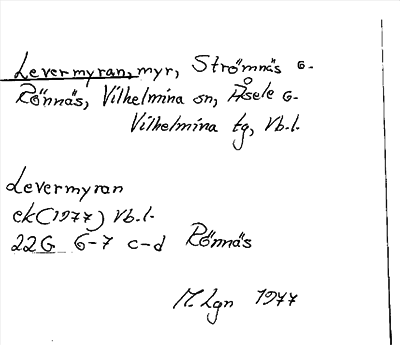 Levermyran, myr, Strömnäs o.
Rönnäs, Vilhelmina sn, Åsele o.
Vilhelmina tg, Vb.l.
Levermyran
ek(1977) Vb.l.
22G 6-7 c-d Rönnäs
M.Lgn 1977